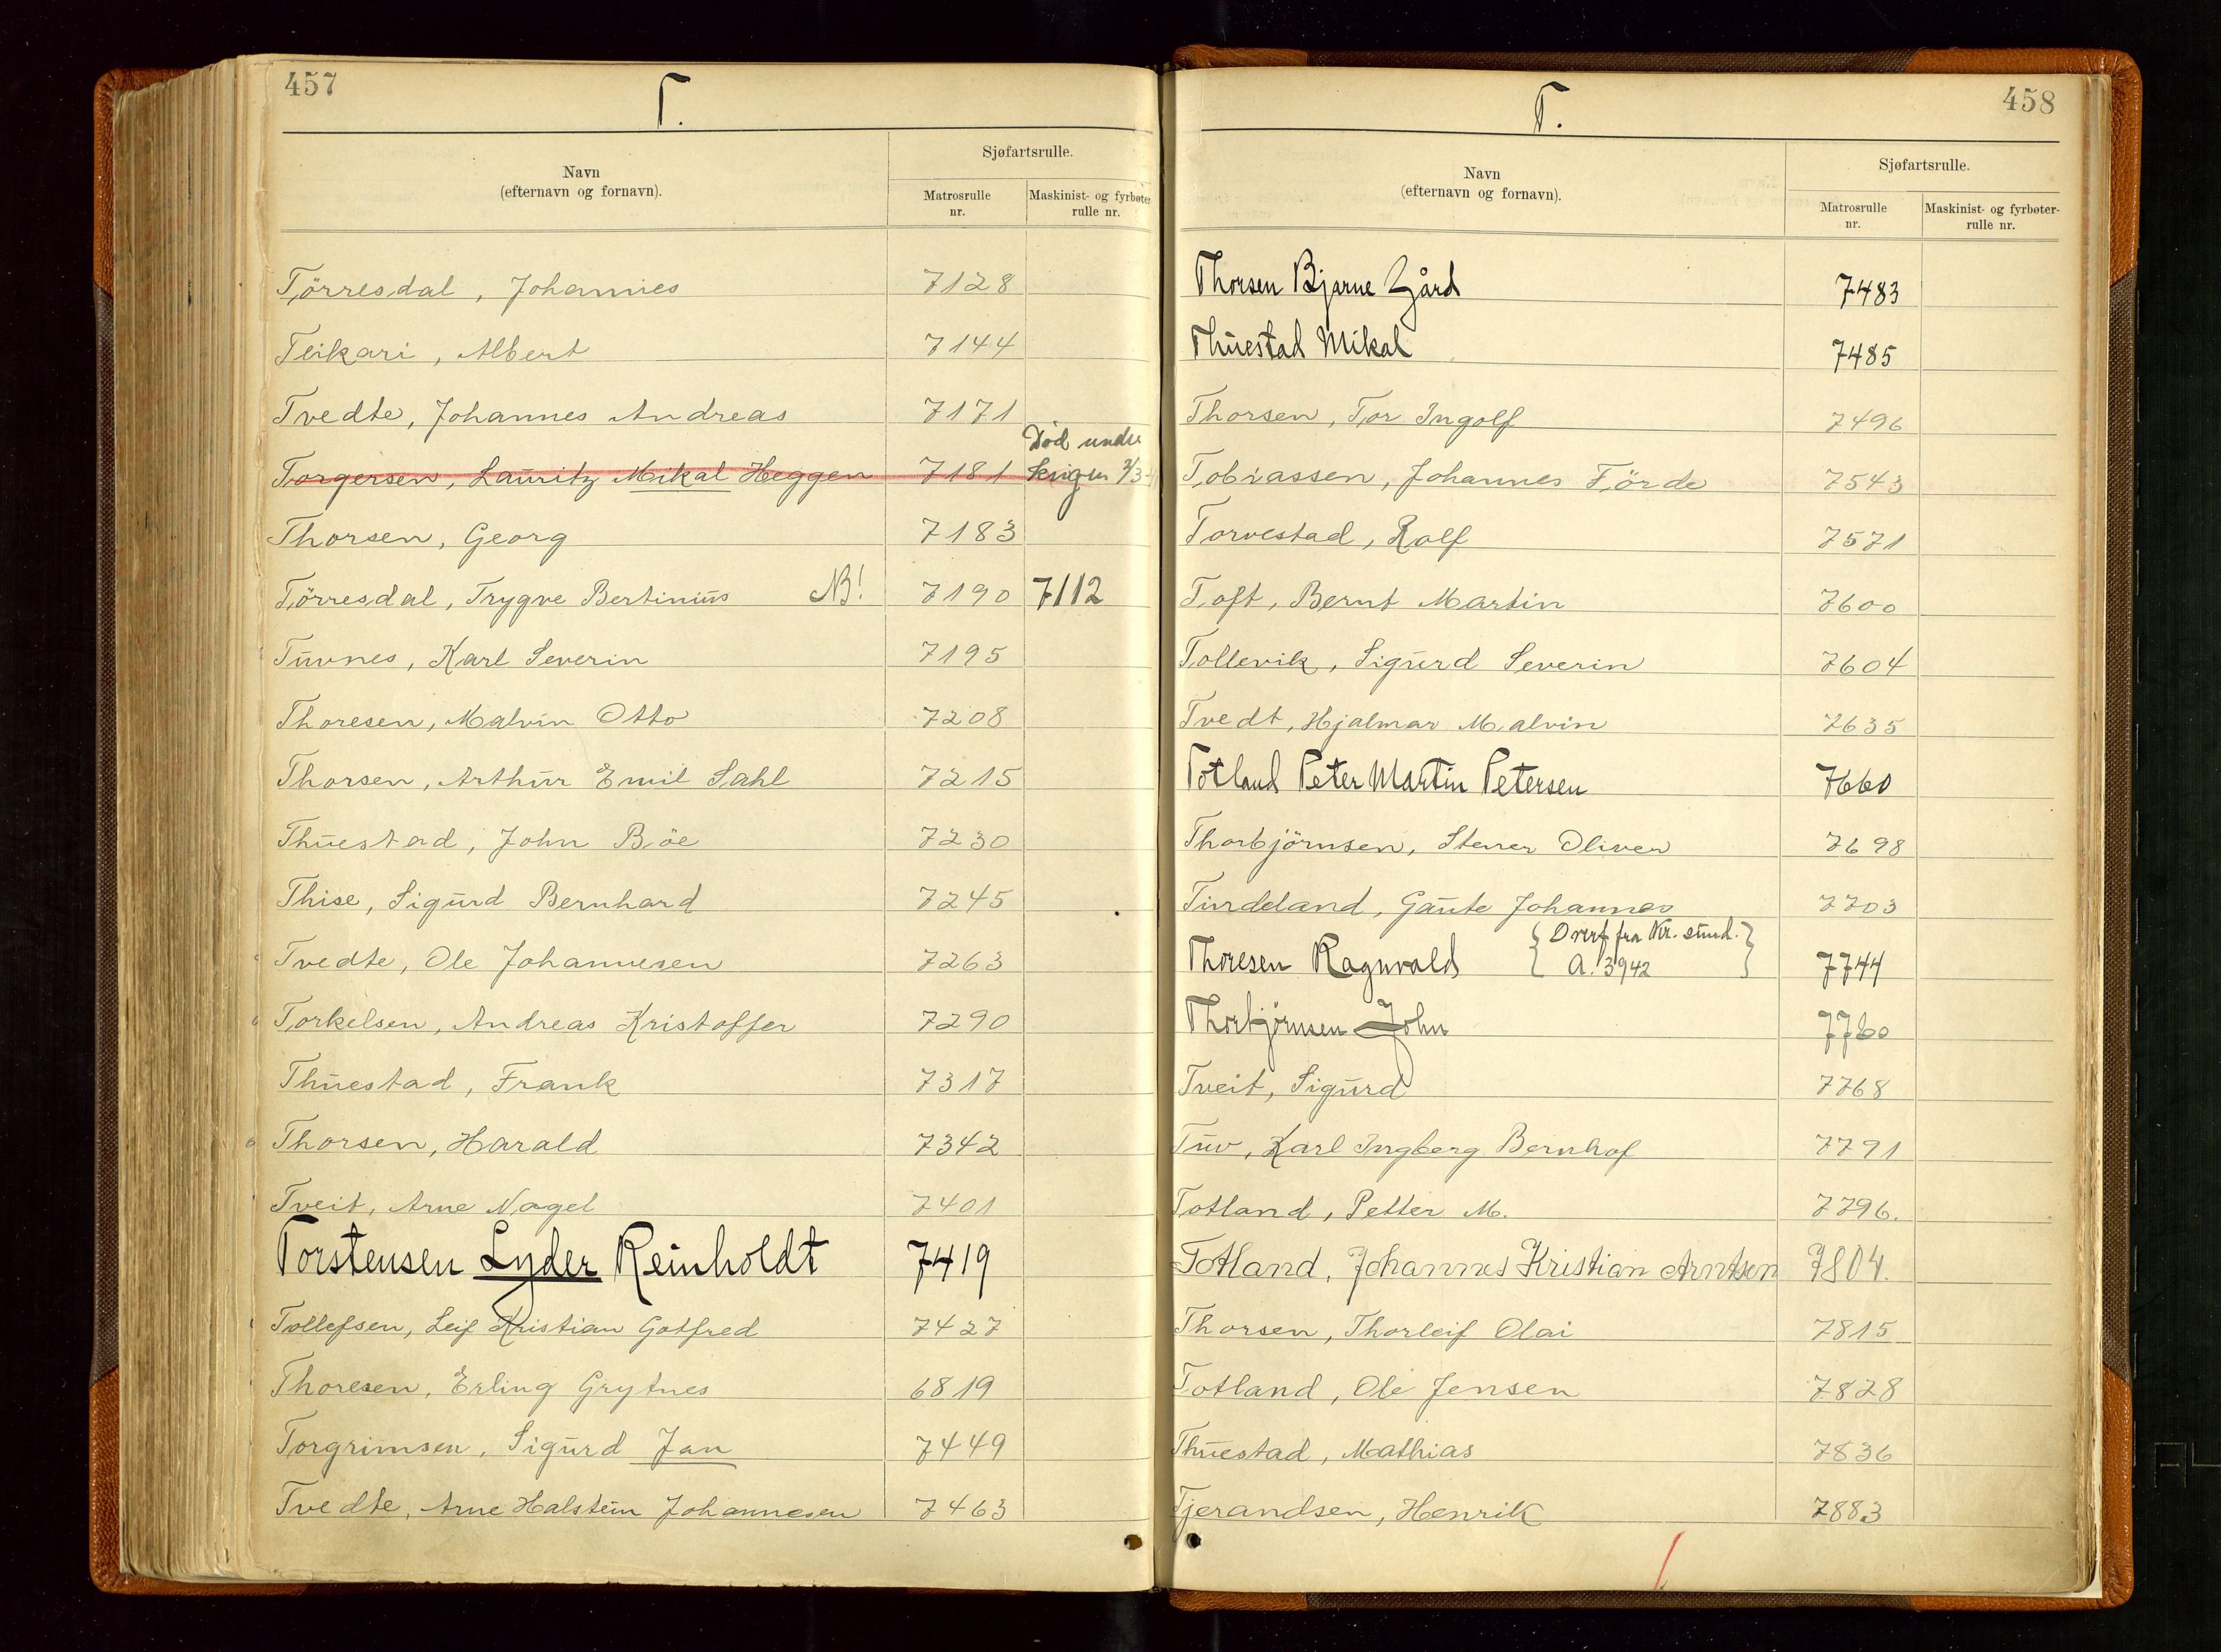 457
T.
Navn
(efternavn og fornavn).
Sjøfartsrulle.
Matrosrulle
nr.
Maskinist- og fyrbøter
rulle nr.
Törresdal, Johannes 7128
Teikari, Albert 7144
Tvedte, Johannes Andreas 7171
Død under
Torgersen, Lauritz Mikal Heggen 7181 krigen
Thorsen, Georg 7183
Törresdal, Trygve Bertinius NB! 7190 7112
Tuvnes, Karl Severin 7195
Thoresen, Malvin Otto 7208
Thorsen, Arthur Emil Sahl 7215
Thuestad, John Böe 7230
Thise, Sigurd Bernhard 7245
Tvedte, Ole Johannesen 7263
Torkelsen, Andreas Kristoffer 7290
Thuestad, Frank 7317
Thorsen, Harald 7342
Tveit, Arne Nagel 7401
Torstensen Lyder Reinholdt 7419
Tollefsen, Leif Kristian Gotfred 7427
Thoresen, Erling Grytnes 6819
Torgrimsen, Sigurd Jan 7449
Tvedte, Arne Halstein Johannesen 7463
458
T.
Navn
(efternavn og fornavn).
Sjøfartsrulle.
Matrosrulle
nr.
Maskinist- og fyrbøter-
rulle nr.
Thorsen Bjarne Gård 7483
Thuestad Mikal 7485
Thorsen, Tor Ingolf 7496
Tobiassen, Johannes Förde 7543
Torvestad, Rolf 7571
Toft, Bernt Martin 7600
Tollevik, Sigurd Severin 7604
Tvedt, Hjalmar Malvin 7635
Totland Peter Martin Petersen 7660
Thorbjörnsen, Stener Oliver 7698
Tindeland, Gaute Johannes 7703
Overf fra Kr. sund.
Thoresen Ragnvald A. 3942 7744
Thorbjörnsen John 7760
Tveit, Sigurd 7768
Tuv, Karl Ingberg Bernhof 7791
Totland, Petter M. 7796.
Totland, Johannes Kristian Arntsen 7804.
Thorsen, Thorleif Olai 7815
Totland, Ole Jensen 7828
Thuestad, Mathias 7836
Tjerandsen, Henrik 7883